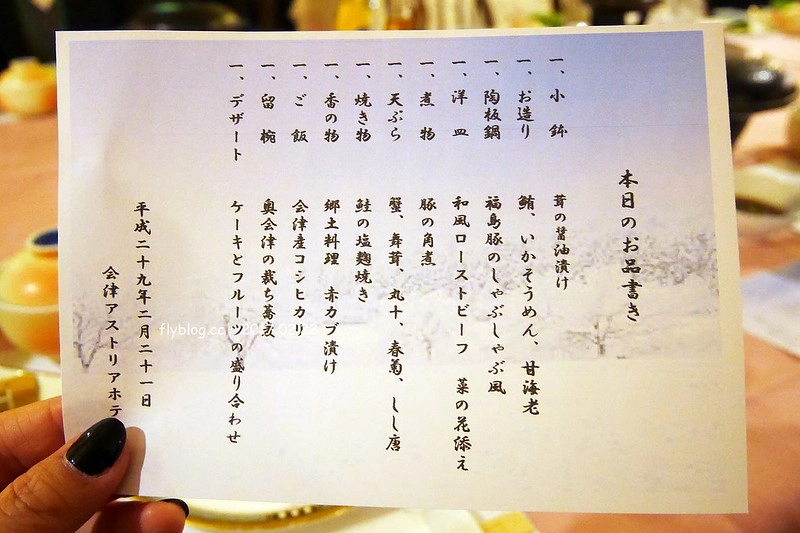 本日のお品書き
一、小鉢 茸の醤油漬け
一、お造り 鮪、いかそうめん、甘海老
一、陶板鍋 福島豚のしゃぶしゃぶ風
一、洋皿 和風ローストビーフ 菜の花添え
一、煮物 豚の角煮
一、天ぷら 蟹、舞茸、丸十、春菊、しし唐
一、焼き物 鮭の塩麹焼き
一、香の物 郷土料理 赤カブ漬け
一、ご飯 会津産コシヒカリ
一、留椀 奥会津の裁ち蕎麦
一、デザート ケーキとフルーツの盛り合わせ
平成二十九年二月二十一日
会津アストリアホテ
flyblog.cc